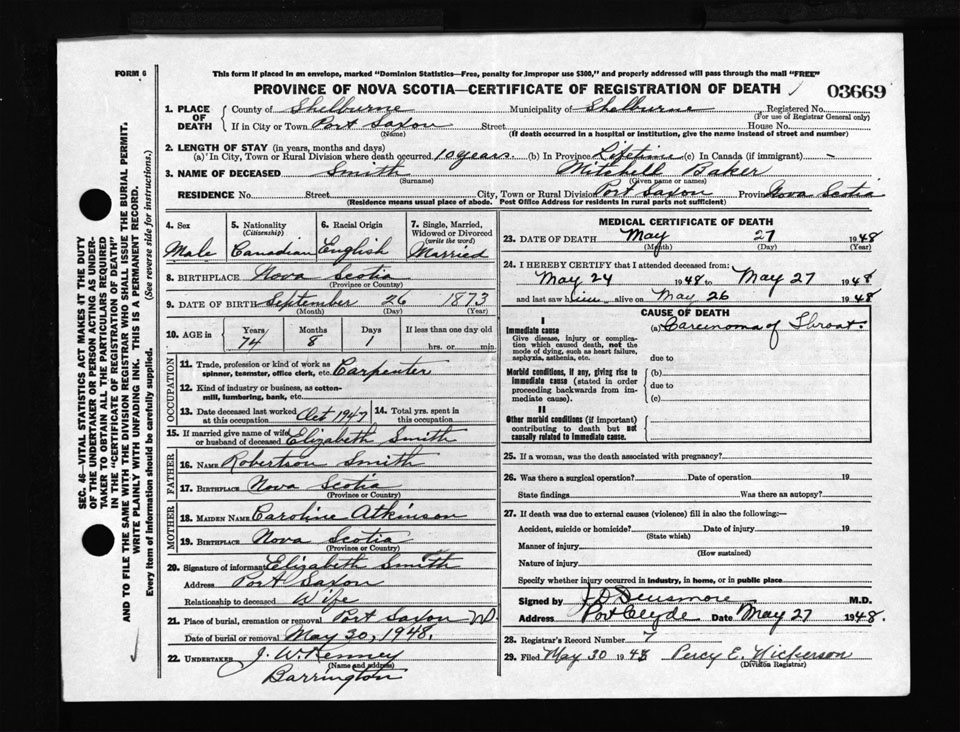 FORM 6
This form if placed in an envelope, marked "Dominion Statistics—Free, penalty for improper use $300," and properly addressed will pass through the mail "FREE"
PROVINCE OF NOVA SCOTIA—CERTIFICATE OF REGISTRATION OF DEATH 03669
1. PLACE OF DEATH County of Shelburne Municipality of Shelburne Registered No.
(For use of Registrar General only)
If in City or Town Port Saxon Street House No.
(Name) (If death occurred in a hospital or institution, give the name instead of street and number)
2. LENGTH OF STAY (in years, months and days)
(a) In City, Town or Rural Division where death occurred 10 years. (b) In Province Lifetime (c) In Canada (if immigrant) -
3. NAME OF DECEASED Smith Mitchell Baker
(Surname) (Given name or names)
RESIDENCE No. Street City, Town or Rural Division Port Saxon Province Nova Scotia
(Residence means usual place of abode. Post Office Address for residents in rural parts not sufficient)
4. Sex 5. Nationality (Citizenship) 6. Racial Origin 7. Single, Married, Widowed or Divorced (write the word)
Male Canadian English Married
8. BIRTHPLACE Nova Scotia
(Province or Country)
9. DATE OF BIRTH September 26 1873
(Month) (Day) (Year)
10. AGE in Years Months Days If less than one day old
74 8 1 hrs. or min.
OCCUPATION
11. Trade, profession or kind of work as spinner, teamster, office clerk, etc. Carpenter
12. Kind of industry or business, as cotton-mill, lumbering, bank, etc.
13. Date deceased last worked at this occupation Oct 1947 14. Total yrs. spent in this occupation
15. If married give name of wife or husband of deceased Elizabeth Smith
FATHER
16. NAME Robertson Smith
17. BIRTHPLACE Nova Scotia
(Province or Country)
MOTHER
18. MAIDEN NAME Caroline Atkinson
19. BIRTHPLACE Nova Scotia
(Province or Country)
20. Signature of informant Elizabeth Smith
Address Port Saxon
Relationship to deceased Wife
21. Place of burial, cremation or removal Port Saxon
Date of burial or removal May 30, 1948.
22. UNDERTAKER J. W. Kenney
(Name and address)
Barrington
MEDICAL CERTIFICATE OF DEATH
23. DATE OF DEATH May 27 1948
(Month) (Day) (Year)
24. I HEREBY CERTIFY that I attended deceased from:
May 24 1948 to May 27 1948
and last saw him alive on May 26 1948
CAUSE OF DEATH
I
Immediate cause (a) Carcinoma of Throat.
Give disease, injury or complication which caused death, not the mode of dying, such as heart failure, asphyxia, asthenia, etc.
due to
Morbid conditions, if any, giving rise to immediate cause (stated in order proceeding backwards from immediate cause).
(b)
due to
(c)
II
Other morbid conditions (if important) contributing to death but not causally related to immediate cause.
25. If a woman, was the death associated with pregnancy?
26. Was there a surgical operation? Date of operation 19
State findings Was there an autopsy?
27. If death was due to external causes (violence) fill in also the following:—
Accident, suicide or homicide? Date of injury 19
(State which)
Manner of injury
(How sustained)
Nature of injury
Specify whether injury occurred in industry, in home, or in public place
Signed by M.D.
Address Port Clyde Date May 27 1948.
28. Registrar's Record Number 7
29. Filed May 30 1948 Percy E. Nickerson
(Division Registrar)
SEC. 46—VITAL STATISTICS ACT MAKES IT THE DUTY
OF THE UNDERTAKER OR PERSON ACTING AS UNDER-
TAKER TO OBTAIN ALL THE PARTICULARS REQUIRED
IN THE "CERTIFICATE OF REGISTRATION OF DEATH"
AND TO FILE THE SAME WITH THE DIVISION REGISTRAR WHO SHALL ISSUE THE BURIAL PERMIT.
WRITE PLAINLY WITH UNFADING INK. THIS IS A PERMANENT RECORD.
Every item of information should be carefully supplied. (See reverse side for instructions.)